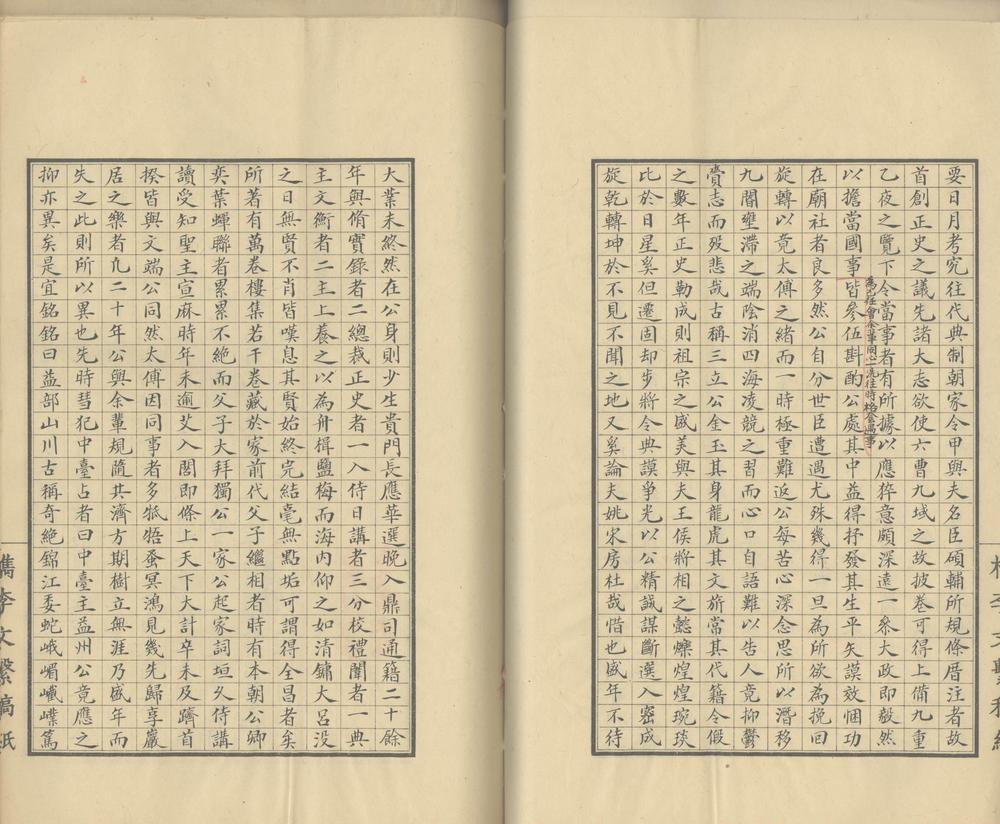 要日月考究往代典制朝家令甲與夫名臣碩輔所規條厝注者故
首創正史之議先諸大志欲使六曹九域之故披卷可得上備九重
乙夜之覽下令當事者有所據以應猝意頗深遠一叅大政即毅然
以擔當國事皆叅伍斟酌公處其中益得抒發其生平矢謨效悃功
在廟社者良多然公自分世臣遭遇尤殊幾得一旦為所欲為挽回
旋轉以竟太傅之緒而一時極重難返公每苦心深念思所以潛移
九閽壅滯之端陰消四海凌競之習而心口自語難以告人竟抑鬱
賫志而歿悲哉古稱三立公金玉其身龍虎其文旂常其代籍令假
之數年正史勒成則祖宗之盛美與夫王侯將相之懿爍煌煌琬琰
比於日星奚但遷固却步將令典謨爭光以公精誠謀斷選入密成
旋乾轉坤於不見不聞之地又奚論夫姚宋房杜哉惜也盛年不待
大業未終然在公身則少生貴門長應華選晚入鼎司通籍二十餘
年與脩實錄者二總裁正史者一入侍日講者三分校禮闈者一典
主文衡者二主上養之以為舟楫鹽梅而海內仰之如清鏞大呂没
之日無賢不肖皆嘆息其賢始終完結毫無點垢可謂得全昌者矣
所著有萬卷樓集若干卷藏於家前代父子繼相者時有本朝公卿
奕葉蟬聯者累累不絶而父子大拜獨公一家公起家詞垣乆侍講
讀受知聖主宣麻時年未逾艾入閣即條上天下大計卒未及躋首
揆皆與文端公同然太傅因同事者多牴牾蚤冥鴻見幾先歸享巖
居之樂者凢二十年公與余輩規隨共濟方期樹立無涯乃盛年而
失之此則所以異也先時彗犯中臺占者曰中臺主益州公竟應之
抑亦異矣是宜銘銘曰益部山川古稱奇絶錦江委蛇峨嵋巀嶪篤
檇李文繫稿紙